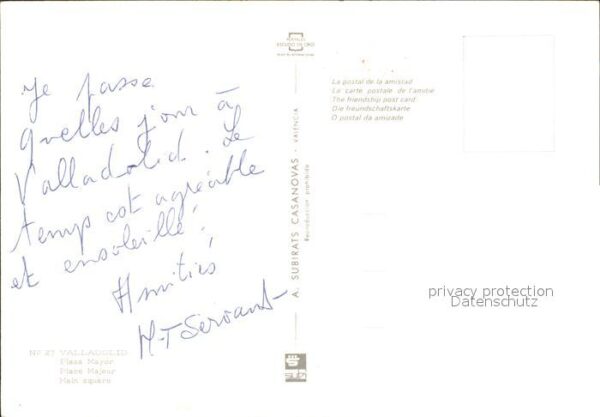 Je passe
quelles jour à
Valladolid. Le
temps est agréable
et ensoleillé!
Amitiés
M-T Servant
Nº 27 VALLADOLID
Plaza Mayor
Place Majeur
Main square
POSTALES
ESCUDO DE ORO
A. SUBIRATS CASANOVAS - VALENCIA
Reproduccion prohibida
La postal de la amistad
La carte postale de l'amitié
The friendship post card
Die freundschaftskarte
O postal da amizade
privacy protection
Datenschutz